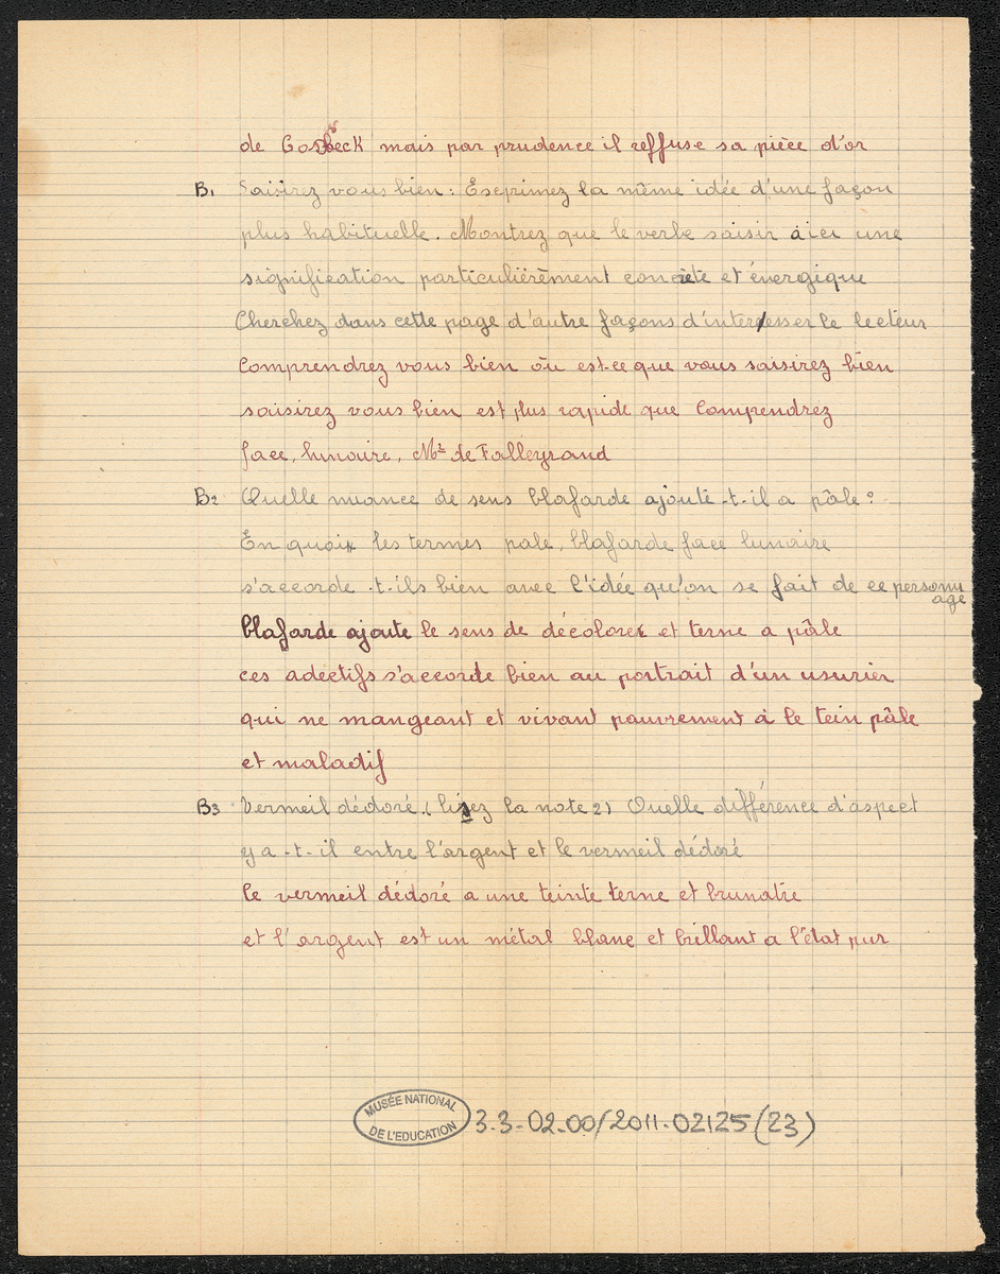 de Gosbeck mais par prudence il reffuse sa pièce d'or
B1 Saisirez vous bien : Éxeprimez la même idée d'une façon
plus habituelle. Montrez que le verbe saisir à ici une
signification particulièrement concrète et énergique
Cherchez dans cette page d'autre façons d'interresser le lecteur
Comprendrez vous bien ou est-ce que vous saisirez bien
saisirez vous bien est plus rapide que Comprendrez
face, lunaire, Mr de Talleyrand
B2 Quelle nuance de sens blafarde ajoute-t-il a pâle ?
En quoi les termes pale, blafarde face lunaire
s'accorde -t-ils bien avec l'idée qu'on se fait de ce personnage
blafarde ajoute le sens de décolorer et terne a pâle
ces adectifs s'accorde bien au portrait d'un usurier
qui ne mangeant et vivant pauvrement à le tein pâle
et maladif
B3 Vermeil dédoré. (lisez la note 2) Quelle différence d'aspect
y a -t- il entre l'argent et le vermeil dédoré
le vermeil dédoré a une teinte terne et brunatre
et l'argent est un métal blanc et brillant a l'état pur
MUSÉE NATIONAL DE L'EDUCATION 3.3-02.00/2011-02125(23)